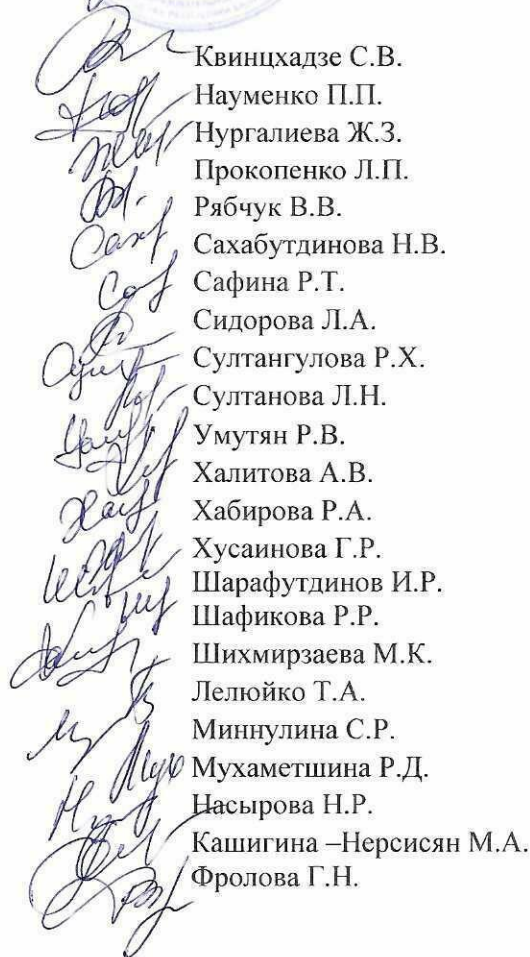 Квинцхадзе С.В.
Науменко П.П.
Нургалиева Ж.З.
Прокопенко Л.П.
Рябчук В.В.
Сахабутдинова Н.В.
Сафина Р.Т.
Сидорова Л.А.
Султангулова Р.Х.
Султанова Л.Н.
Умутян Р.В.
Халитова А.В.
Хабирова Р.А.
Хусаинова Г.Р.
Шарафутдинов И.Р.
Шафикова Р.Р.
Шихмирзаева М.К.
Лелюйко Т.А.
Миннулина С.Р.
Мухаметшина Р.Д.
Насырова Н.Р.
Кашигина –Нерсисян М.А.
Фролова Г.Н.